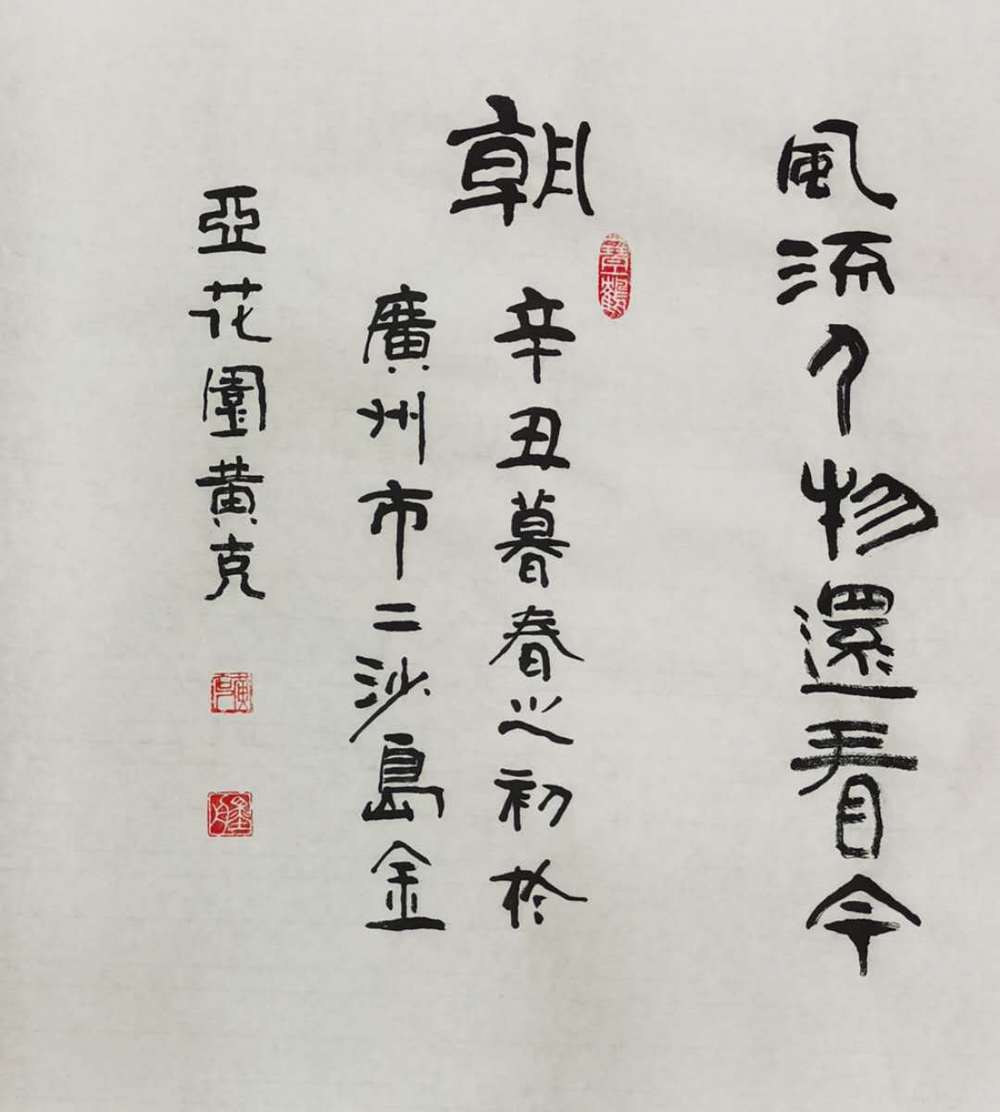 風流人物還看今
朝
辛丑暮春之初於
廣州市二沙島金
亞花園黄克